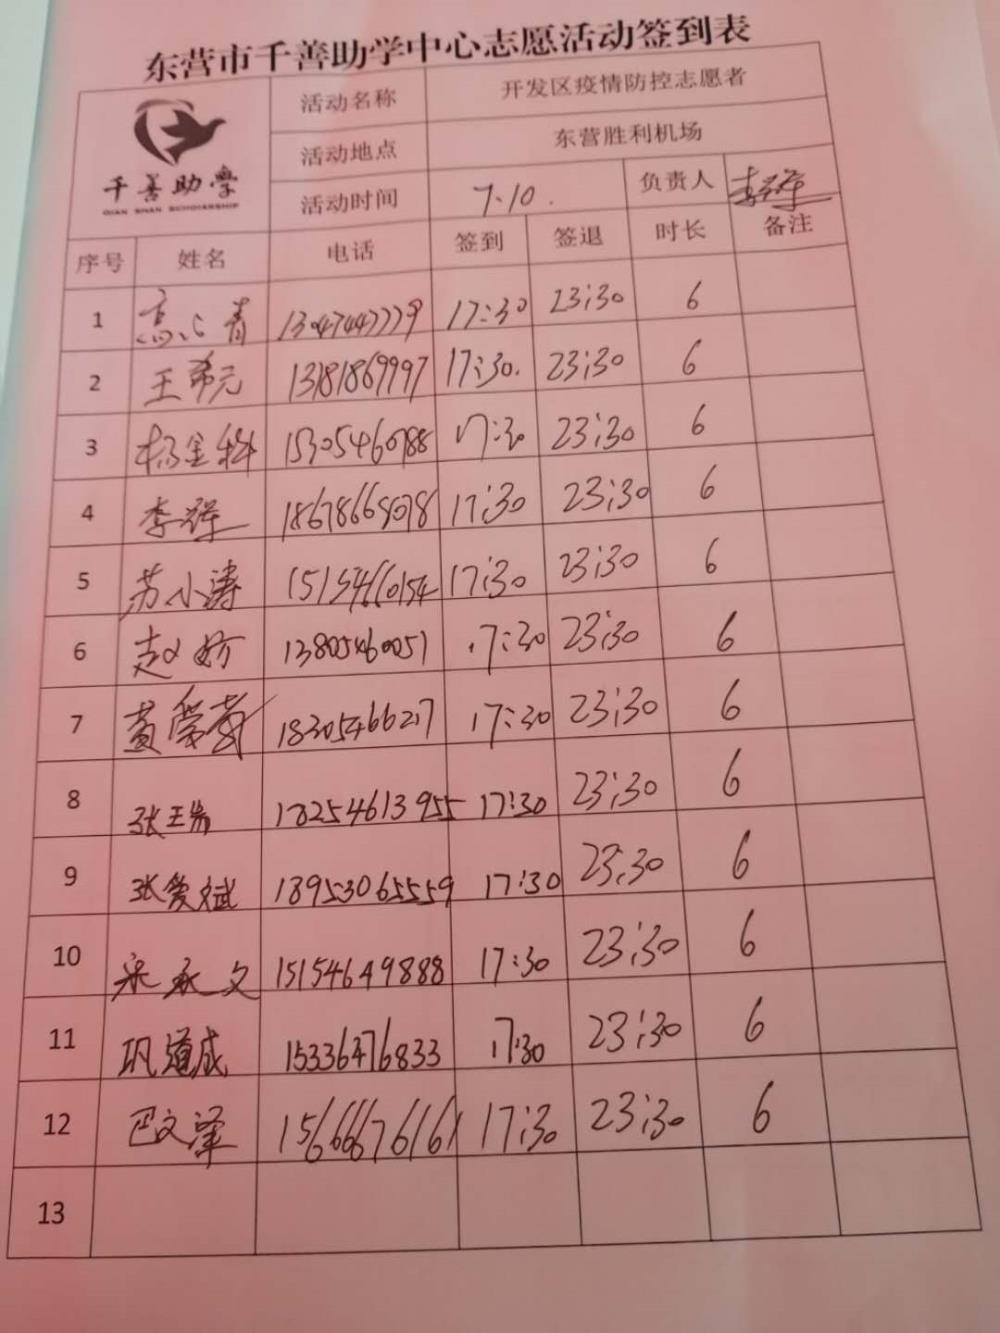 东营市千善助学中心志愿活动签到表
千善助学
QIAN SHAN SCHOLARSHIP
活动名称 开发区疫情防控志愿者
活动地点 东营胜利机场
活动时间 7.10. 负责人 李辉
序号 姓名 电话 签到 签退 时长 备注
1 高心青 13047447779 17:30 23:30 6
2 王希元 13181869997 17:30. 23:30 6
3 杨金科 15305460788 17:30 23:30 6
4 李辉 18678665078 17:30 23:30 6
5 苏小涛 15154660154 17:30 23:30 6
6 赵娇 13805460057 17:30 23:30 6
7 黄荣菊 17:30 23:30 6
8 张玉岩 18254613955 17:30 23:30 6
9 张爱斌 18953065559 17:30 23:30 6
10 宋永文 15154649888 17:30 23:30 6
11 巩道成 15336476833 17:30 23:30 6
12 巴文泽 15666676161 17:30 23:30 6
13